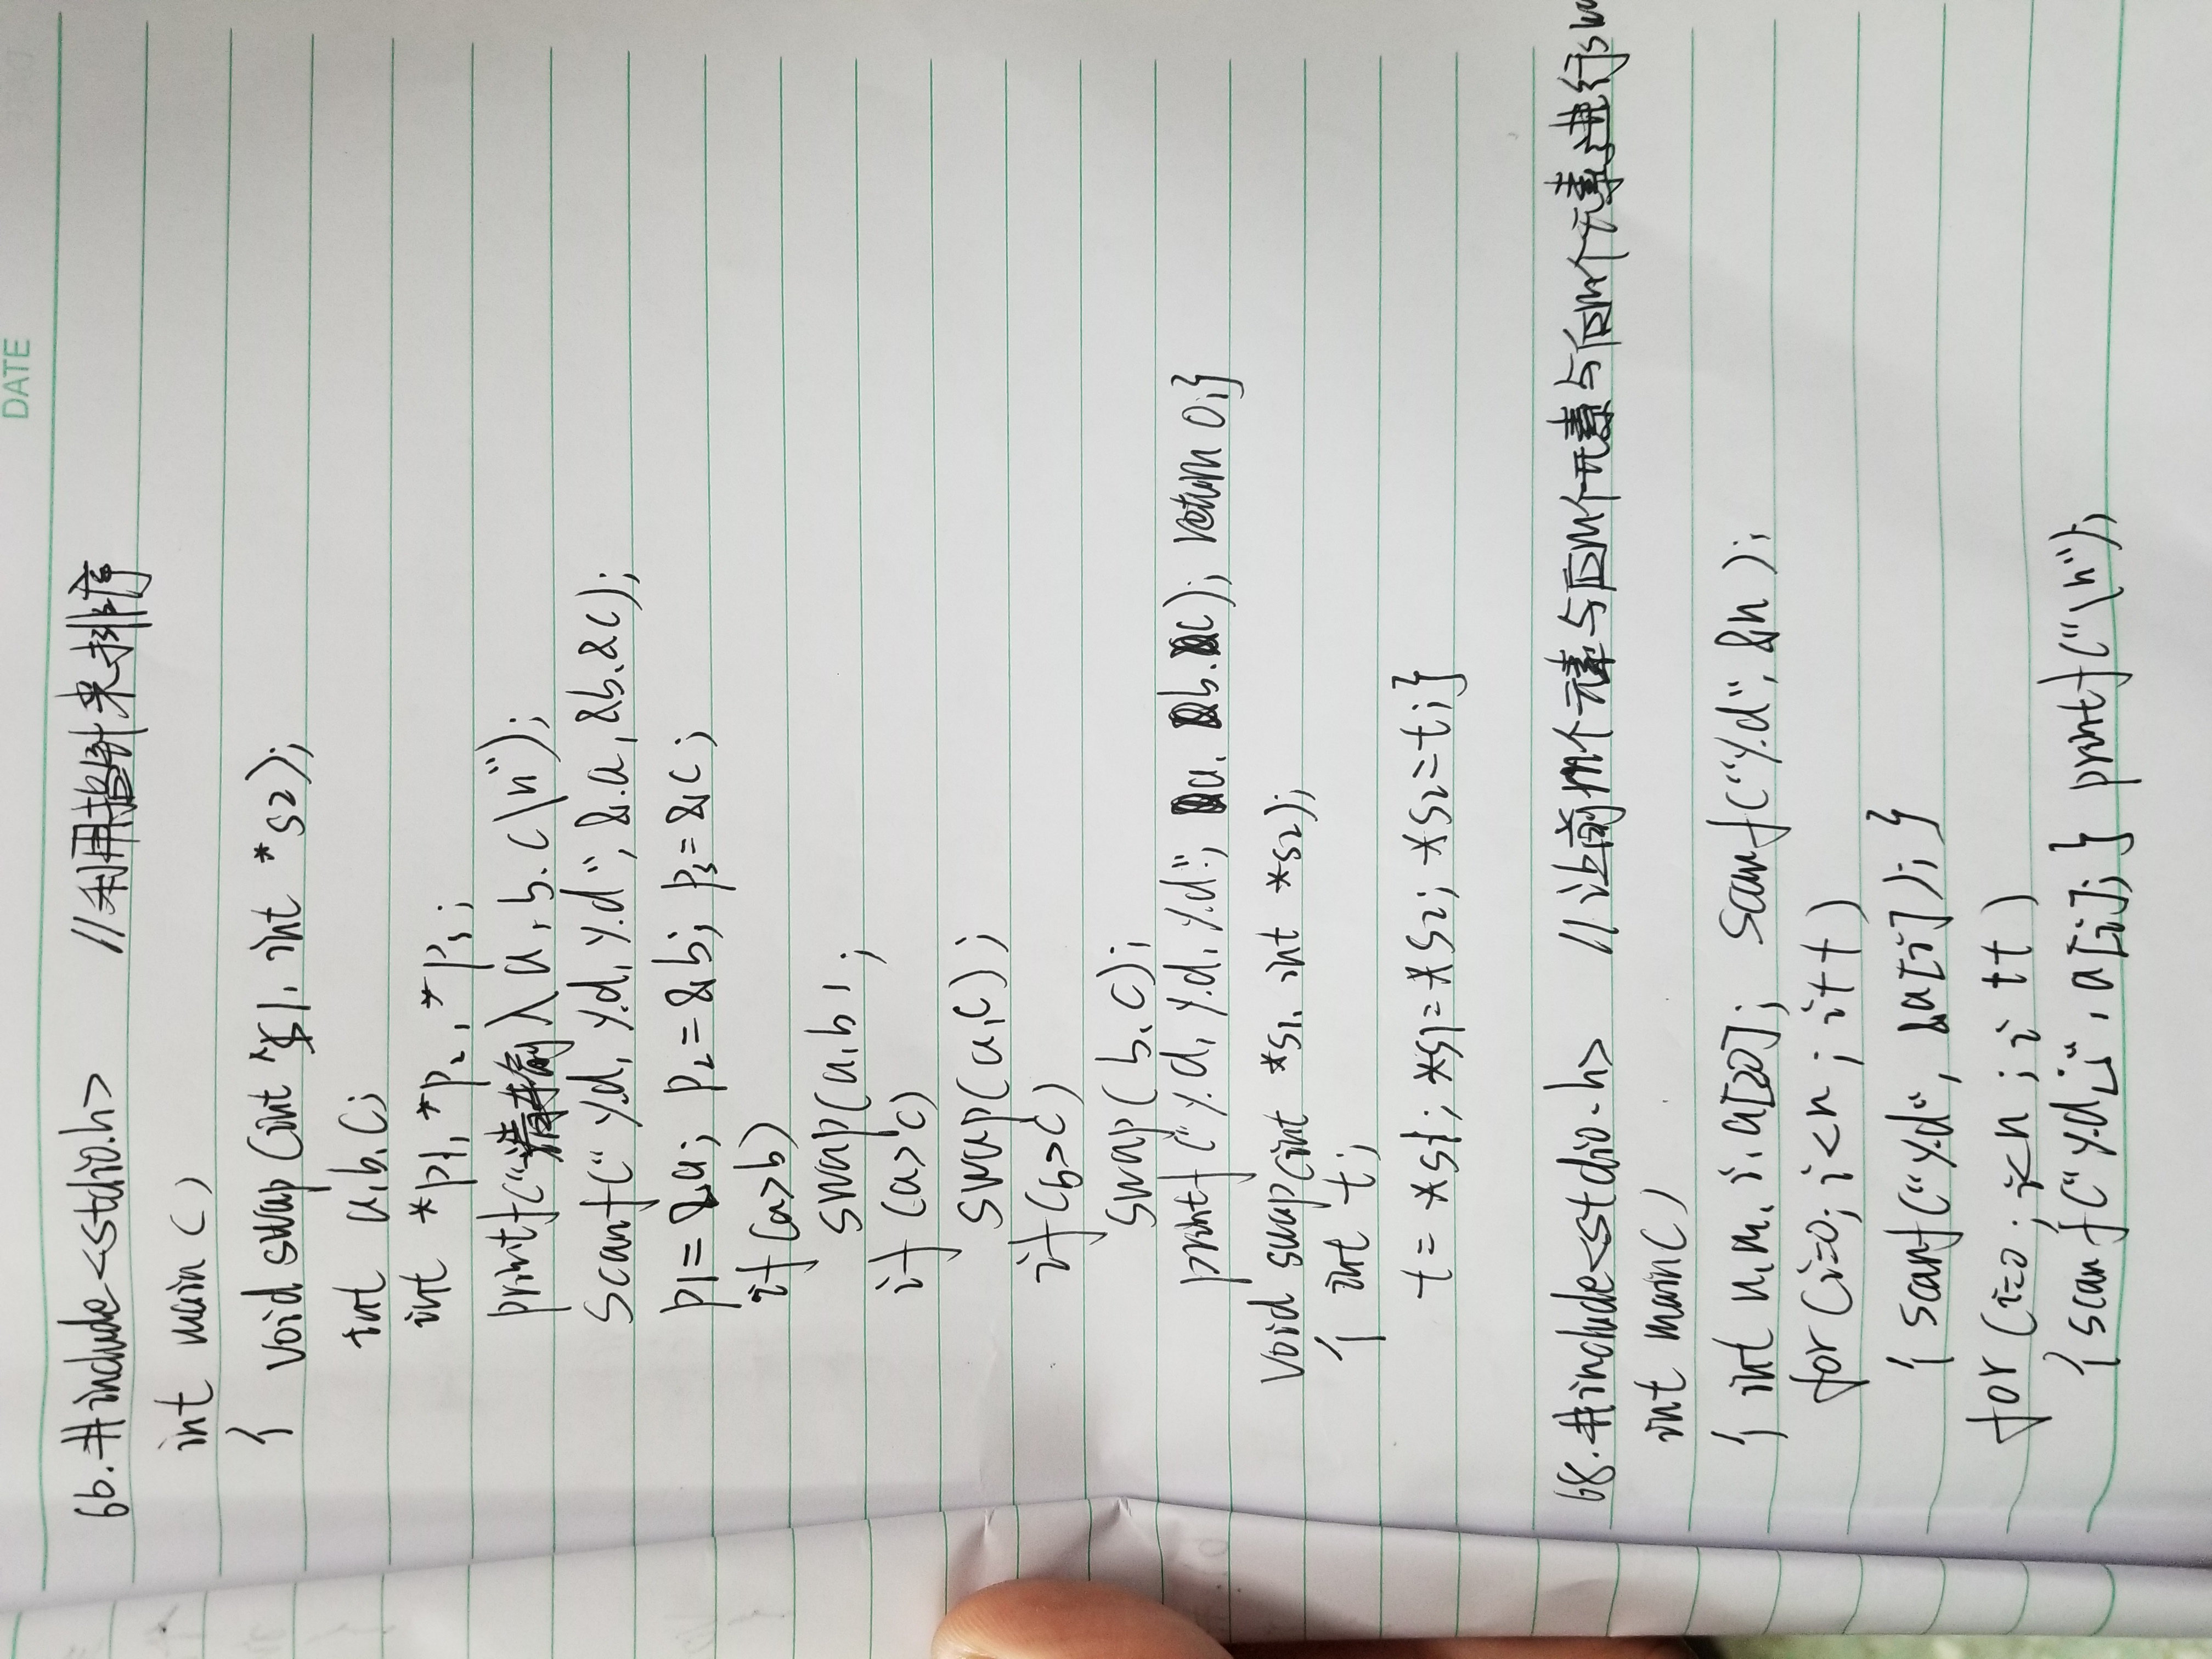 DATE
66. #include<stdio.h> //利用指针来排序
int main ()
{ void swap (int *s1, int *s2);
int a,b,c;
int *p1, *p2, *p3;
printf("请输入a,b,c\n");
scanf("%d,%d,%d",&a,&b,&c);
p1=&a; p2=&b; p3=&c;
if(a>b)
swap(a,b);
if (a>c)
swap(a,c);
if(b>c)
swap(b,c);
printf("%d,%d,%d", a,b,c); return 0;}
void swap(int *s1, int *s2);
{ int t;
t= *s1; *s1=*s2; *s2=t;}
68. #include<stdio.h> //让前m个元素与后m个元素与后m个元素进行sw
int main()
{ int n,m,i,a[20]; scanf("%d",&n);
for(i=0;i<n;i++)
{ scanf("%d", &a[i]);}
for (i=0;i<n;i++)
{scanf("%d␣", a[i];} printf("\n");